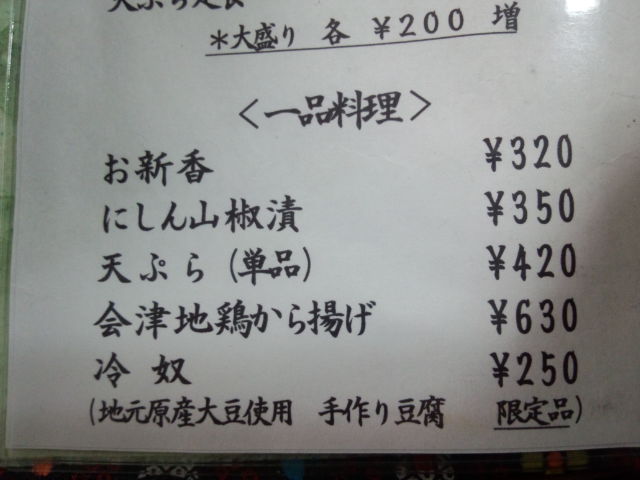 天ぷら定食
＊大盛り 各 ¥200 増
〈一品料理〉
お新香 ¥320
にしん山椒漬 ¥350
天ぷら (単品) ¥420
会津地鶏から揚げ ¥630
冷奴 ¥250
(地元原産大豆使用 手作り豆腐 限定品)